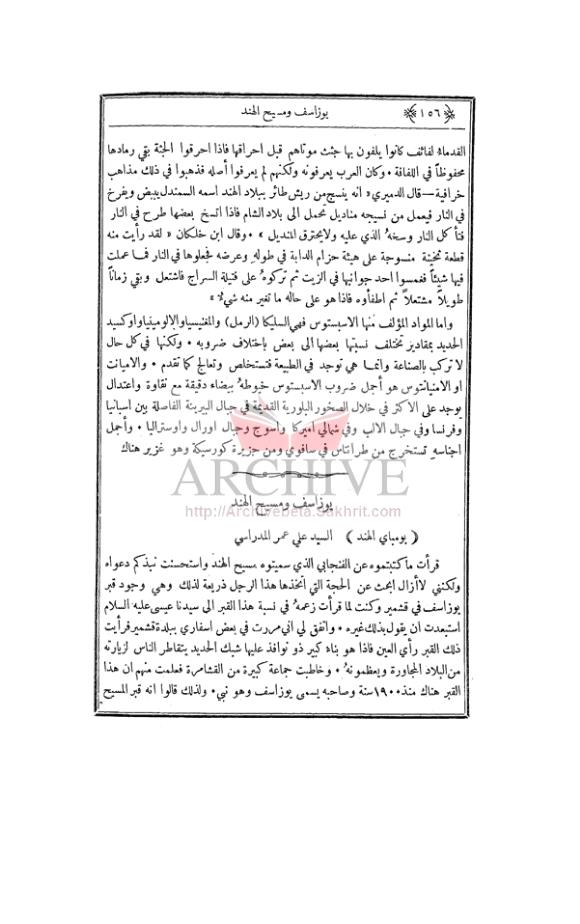 ﴿١٥٦﴾ يوزاسف ومسيح الهند
القدماء لفائف كانوا يلفون بها جثث موتاهم قبل احراقها فاذا احرقوا الجثة بقي رمادها
محفوظاً في اللفافة ٠ وكان العرب يعرفونه ولكنهم لم يعرفوا أصله فذهبوا في ذلك مذاهب
خرافية — قال الدميري « انه ينسج من ريش طائر ببلاد الهند اسمه السمندل يبيض ويفرخ
في النار فيعمل من نسيجه مناديل تحمل الى بلاد الشام فاذا اتسخ بعضها طرح في النار
فتأكل النار وسخهُ الذي عليه ولا يحترق المنديل » ٠ وقال ابن خلكان « لقد رأيت منه
قطعة ثخينة منسوجة على هيئة حزام الدابة في طوله وعرضه فجعلوها في النار فما عملت
فيها شيئاً فغمسوا احد جوانبها في الزيت ثم تركوهُ على فتيلة السراج فاشتعل وبقي زماناً
طويلاً مشتعلاً ثم اطفأوه فاذا هو على حاله ما تغير منه شيءٌ »
واما المواد المؤلف منها الاسبستوس فهي السليكا (الرمل) والمغنيسيا والالومينيا واوكسيد
الحديد بمقادير تختلف نسبتها بعضها الى بعض باختلاف ضروبه ٠ ولكنها في كل حال
لا تركب بالصناعة وانما هي توجد في الطبيعة فتستخلص وتعالج كما تقدم ٠ والاميانت
او الاميانتوس هو أجمل ضروب الاسبستوس خيوطهُ بيضاء دقيقة مع نقاوة واعتدال
يوجد على الاكثر في خلال الصخور البلورية القديمة في جبال البيرينة الفاصلة بين اسبانيا
وفرنسا وفي جبال الالب وفي شمالي اميركا واسوج وجبال اورال واوستراليا ٠ وأجمل
اجناسه تستخرج من طرانتاس في سافوي ومن جزيرة كورسيكة وهو غزير هناك
ARCHIVE
يوزاسف ومسيح الهند
http://Archivebeta.Sakhrit.com
( بومباي الهند ) السيد علي عمر المدراسي
قرأت ما كتبتموه عن الفنجابي الذي سميتوه مسيح الهند واستحسنت نبذكم دعواه
ولكنني لا أزال ابحث عن الحجة التي اتخذها هذا الرجل ذريعة لذلك وهي وجود قبر
يوزاسف في قشمير وكنت لما قرأت زعمهُ في نسبة هذا القبر الى سيدنا عيسى عليه السلام
استبعدت ان يقول بذلك غيره ٠ واتفق لي اني مررت في بعض اسفاري ببلدة قشمير فرأيت
ذلك القبر رأي العين فاذا هو بناء كبير ذو نوافذ عليها شبك الحديد يتقاطر الناس لزيارته
من البلاد المجاورة ويعظمونهُ ٠ وخاطبت جماعة كبيرة من القشامرة فعلمت منهم ان هذا
القبر هناك منذ ١٩٠٠ سنة وصاحبه يسمى يوزاسف وهو نبي ٠ ولذلك قالوا انه قبر المسيح